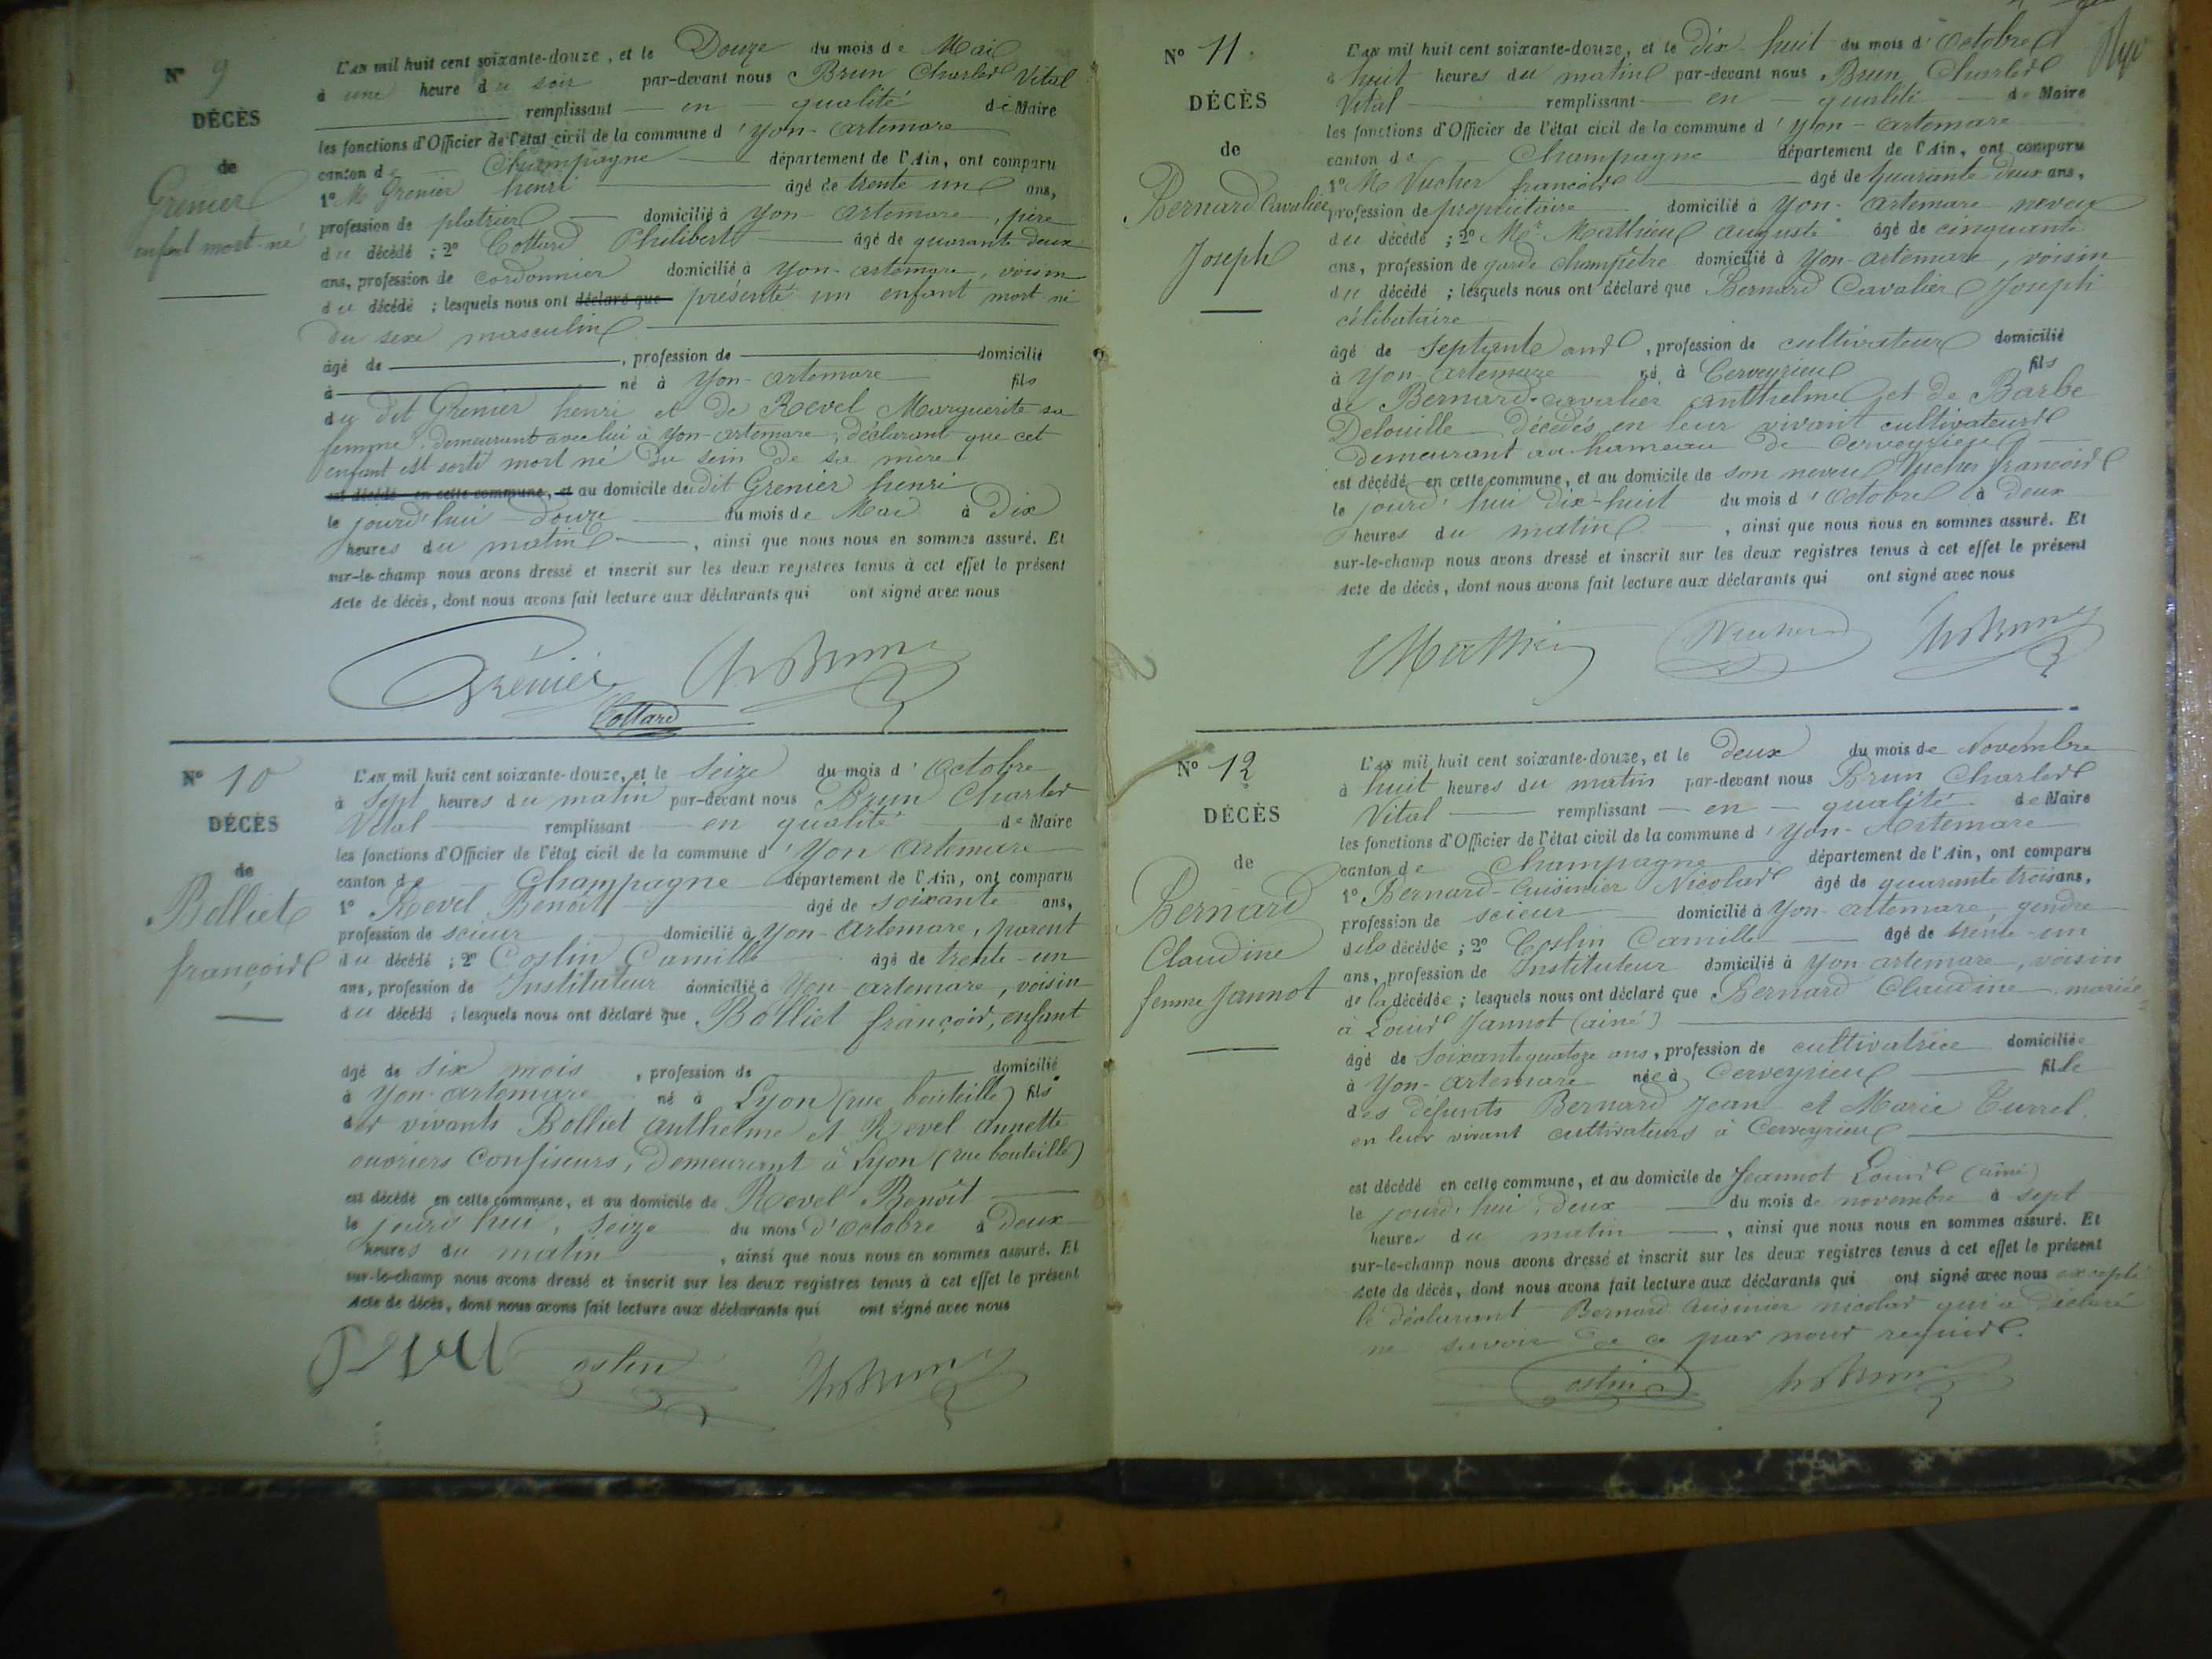 N° 9
DÉCÈS
de
Grenier
enfant mort-né
L'an mil huit cent soixante-douze, et le Douze du mois de Mai
à une heure du soir par-devant nous Brun Charles Vital
remplissant en qualité de Maire
les fonctions d'Officier de l'état civil de la commune d'Yon-Artemare
canton de Champagne département de l'Ain, ont comparu
1° M Grenier henri âgé de trente un ans,
profession de platrier domicilié à Yon-Artemare, père
du décédé ; 2° Cottard Philibert âgé de quarante deux
ans, profession de cordonnier domicilié à Yon-artemare, voisin
du décédé ; lesquels nous ont déclaré que présenté un enfant mort-né
du sexe masculin
âgé de , profession de domicilié
à né à Yon-artemare fils
du dit Grenier henri et de Revel Marguerite sa
femme, demeurant avec lui à Yon-artemare, déclarant que cet
enfant est sorti mort né du sein de sa mère
est décédé en cette commune, et au domicile du dit Grenier henri
le jourd'hui douze du mois de Mai à Dix
heures du matin , ainsi que nous nous en sommes assuré. Et
sur-le-champ nous avons dressé et inscrit sur les deux registres tenus à cet effet le présent
Acte de décès, dont nous avons fait lecture aux déclarants qui ont signé avec nous
Grenier Ch Brun
Cottard
N° 10
DÉCÈS
de
Bolliet
françois
L'an mil huit cent soixante-douze, et le Seize du mois d'Octobre
à Sept heures du matin par-devant nous Brun Charles
Vital remplissant en qualité de Maire
les fonctions d'Officier de l'état civil de la commune d'Yon Artemare
canton de Champagne département de l'Ain, ont comparu
1° Revel Benoit âgé de soixante ans,
profession de scieur domicilié à Yon-Artemare, parent
du décédé ; 2° Coslin Camille âgé de trente-un
ans, profession de Instituteur domicilié à Yon-artemare, voisin
du décédé ; lesquels nous ont déclaré que Bolliet françois, enfant
âgé de six mois , profession de domicilié
à Yon-artemare né à Lyon (rue bouteille) fils
des vivants Bolliet Anthelme et Revel Annette
ouvriers Confiseurs, Demeurant à Lyon (rue bouteille)
est décédé en cette commune, et au domicile de Revel Benoît
le jourd'hui, Seize du mois d'octobre à Deux
heures du matin , ainsi que nous nous en sommes assuré. Et
sur-le-champ nous avons dressé et inscrit sur les deux registres tenus à cet effet le présent
Acte de décès, dont nous avons fait lecture aux déclarants qui ont signé avec nous
Coslin Ch Brun
N° 11
DÉCÈS
de
Bernard Cavalier
Joseph
L'an mil huit cent soixante-douze, et le dix-huit du mois d'Octobre
à huit heures du matin par-devant nous Brun Charles
Vital remplissant en qualité de Maire
les fonctions d'Officier de l'état civil de la commune d'Yon-artemare
canton de Champagne département de l'Ain, ont comparu
1° M Vucher francois âgé de quarante deux ans,
profession de propriétaire domicilié à Yon-artemare neveu
du décédé ; 2° Mr Mathieu auguste âgé de cinquante
ans, profession de garde champêtre domicilié à Yon-artemare, voisin
du décédé ; lesquels nous ont déclaré que Bernard Cavalier Joseph
célibataire
âgé de septante ans, profession de cultivateur domicilié
à Yon-Artemare né à Cerveyrieu fils
de Bernard-Cavalier Antthelme et de Barbe
Delouille Décédés en leur vivant cultivateurs
demeurant au hameau de Cerveyrieu
est décédé en cette commune, et au domicile de son neveu Vucher francois
le jourd'hui Dix-huit du mois d'octobre à Deux
heures du matin , ainsi que nous nous en sommes assuré. Et
sur-le-champ nous avons dressé et inscrit sur les deux registres tenus à cet effet le présent
Acte de décès, dont nous avons fait lecture aux déclarants qui ont signé avec nous
Mathieu Vucher Ch Brun
N° 12
DÉCÈS
de
Bernard
Claudine
femme Jannot
L'an mil huit cent soixante-douze, et le deux du mois de Novembre
à huit heures du matin par-devant nous Brun Charles
Vital remplissant en qualité de Maire
les fonctions d'Officier de l'état civil de la commune d'Yon-Artemare
canton de Champagne département de l'Ain, ont comparu
1° Bernard-Cuisinier Nicolas âgé de quarante trois ans,
profession de scieur domicilié à Yon-artemare, gendre
de la décédée ; 2° Coslin Camille âgé de trente-un
ans, profession de Instituteur domicilié à Yon-artemare, voisin
de la décédée ; lesquels nous ont déclaré que Bernard Claudine mariée
à Louis Jannot (ainé)
âgé de soixante quatorze ans, profession de cultivatrice domiciliée
à Yon-artemare née à Cerveyrieu fille
des défunts Bernard Jean et Marie Turrel
en leur vivant cultivateurs à Cerveyrieu
est décédé en cette commune, et au domicile de Jeannot Louis (ainé)
le jourd'hui deux du mois de novembre à sept
heures du matin , ainsi que nous nous en sommes assuré. Et
sur-le-champ nous avons dressé et inscrit sur les deux registres tenus à cet effet le présent
Acte de décès, dont nous avons fait lecture aux déclarants qui ont signé avec nous excepté
le déclarant Bernard Cuisinier nicolas qui a déclaré
ne savoir de ce par nous requis.
Coslin Ch Brun